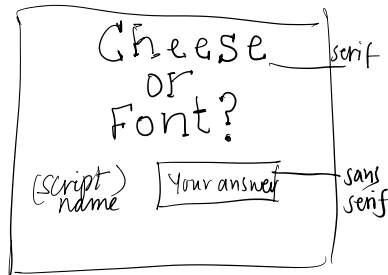 Cheese
or
Font?
serif
(script)
name
Your answer
sans
serif